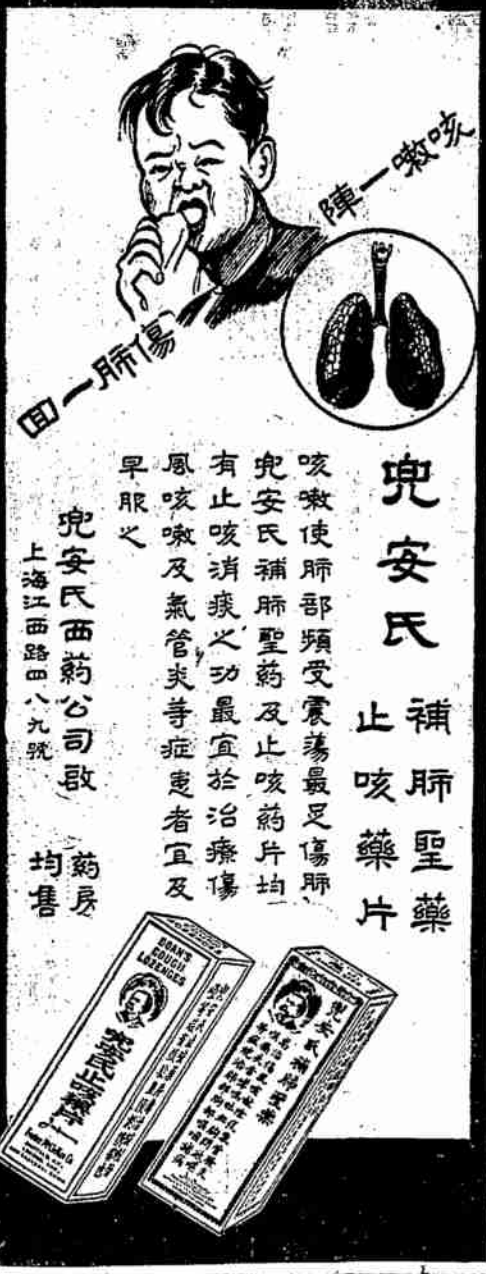 咳嗽一陣
傷肺一回
兜安氏
補肺聖藥
止咳藥片
咳嗽使肺部頻受震蕩最足傷肺
兜安氏補肺聖药及止咳药片均
有止咳消痰之功最宜於治療傷
風咳嗽及氣管炎等症患者宜及
早服之
兜安氏西药公司啟
上海江西路四八九號
药房
均售
DOAN'S
COUGH
LOZENGES
兜安氏止咳藥片
兜安氏補肺聖藥